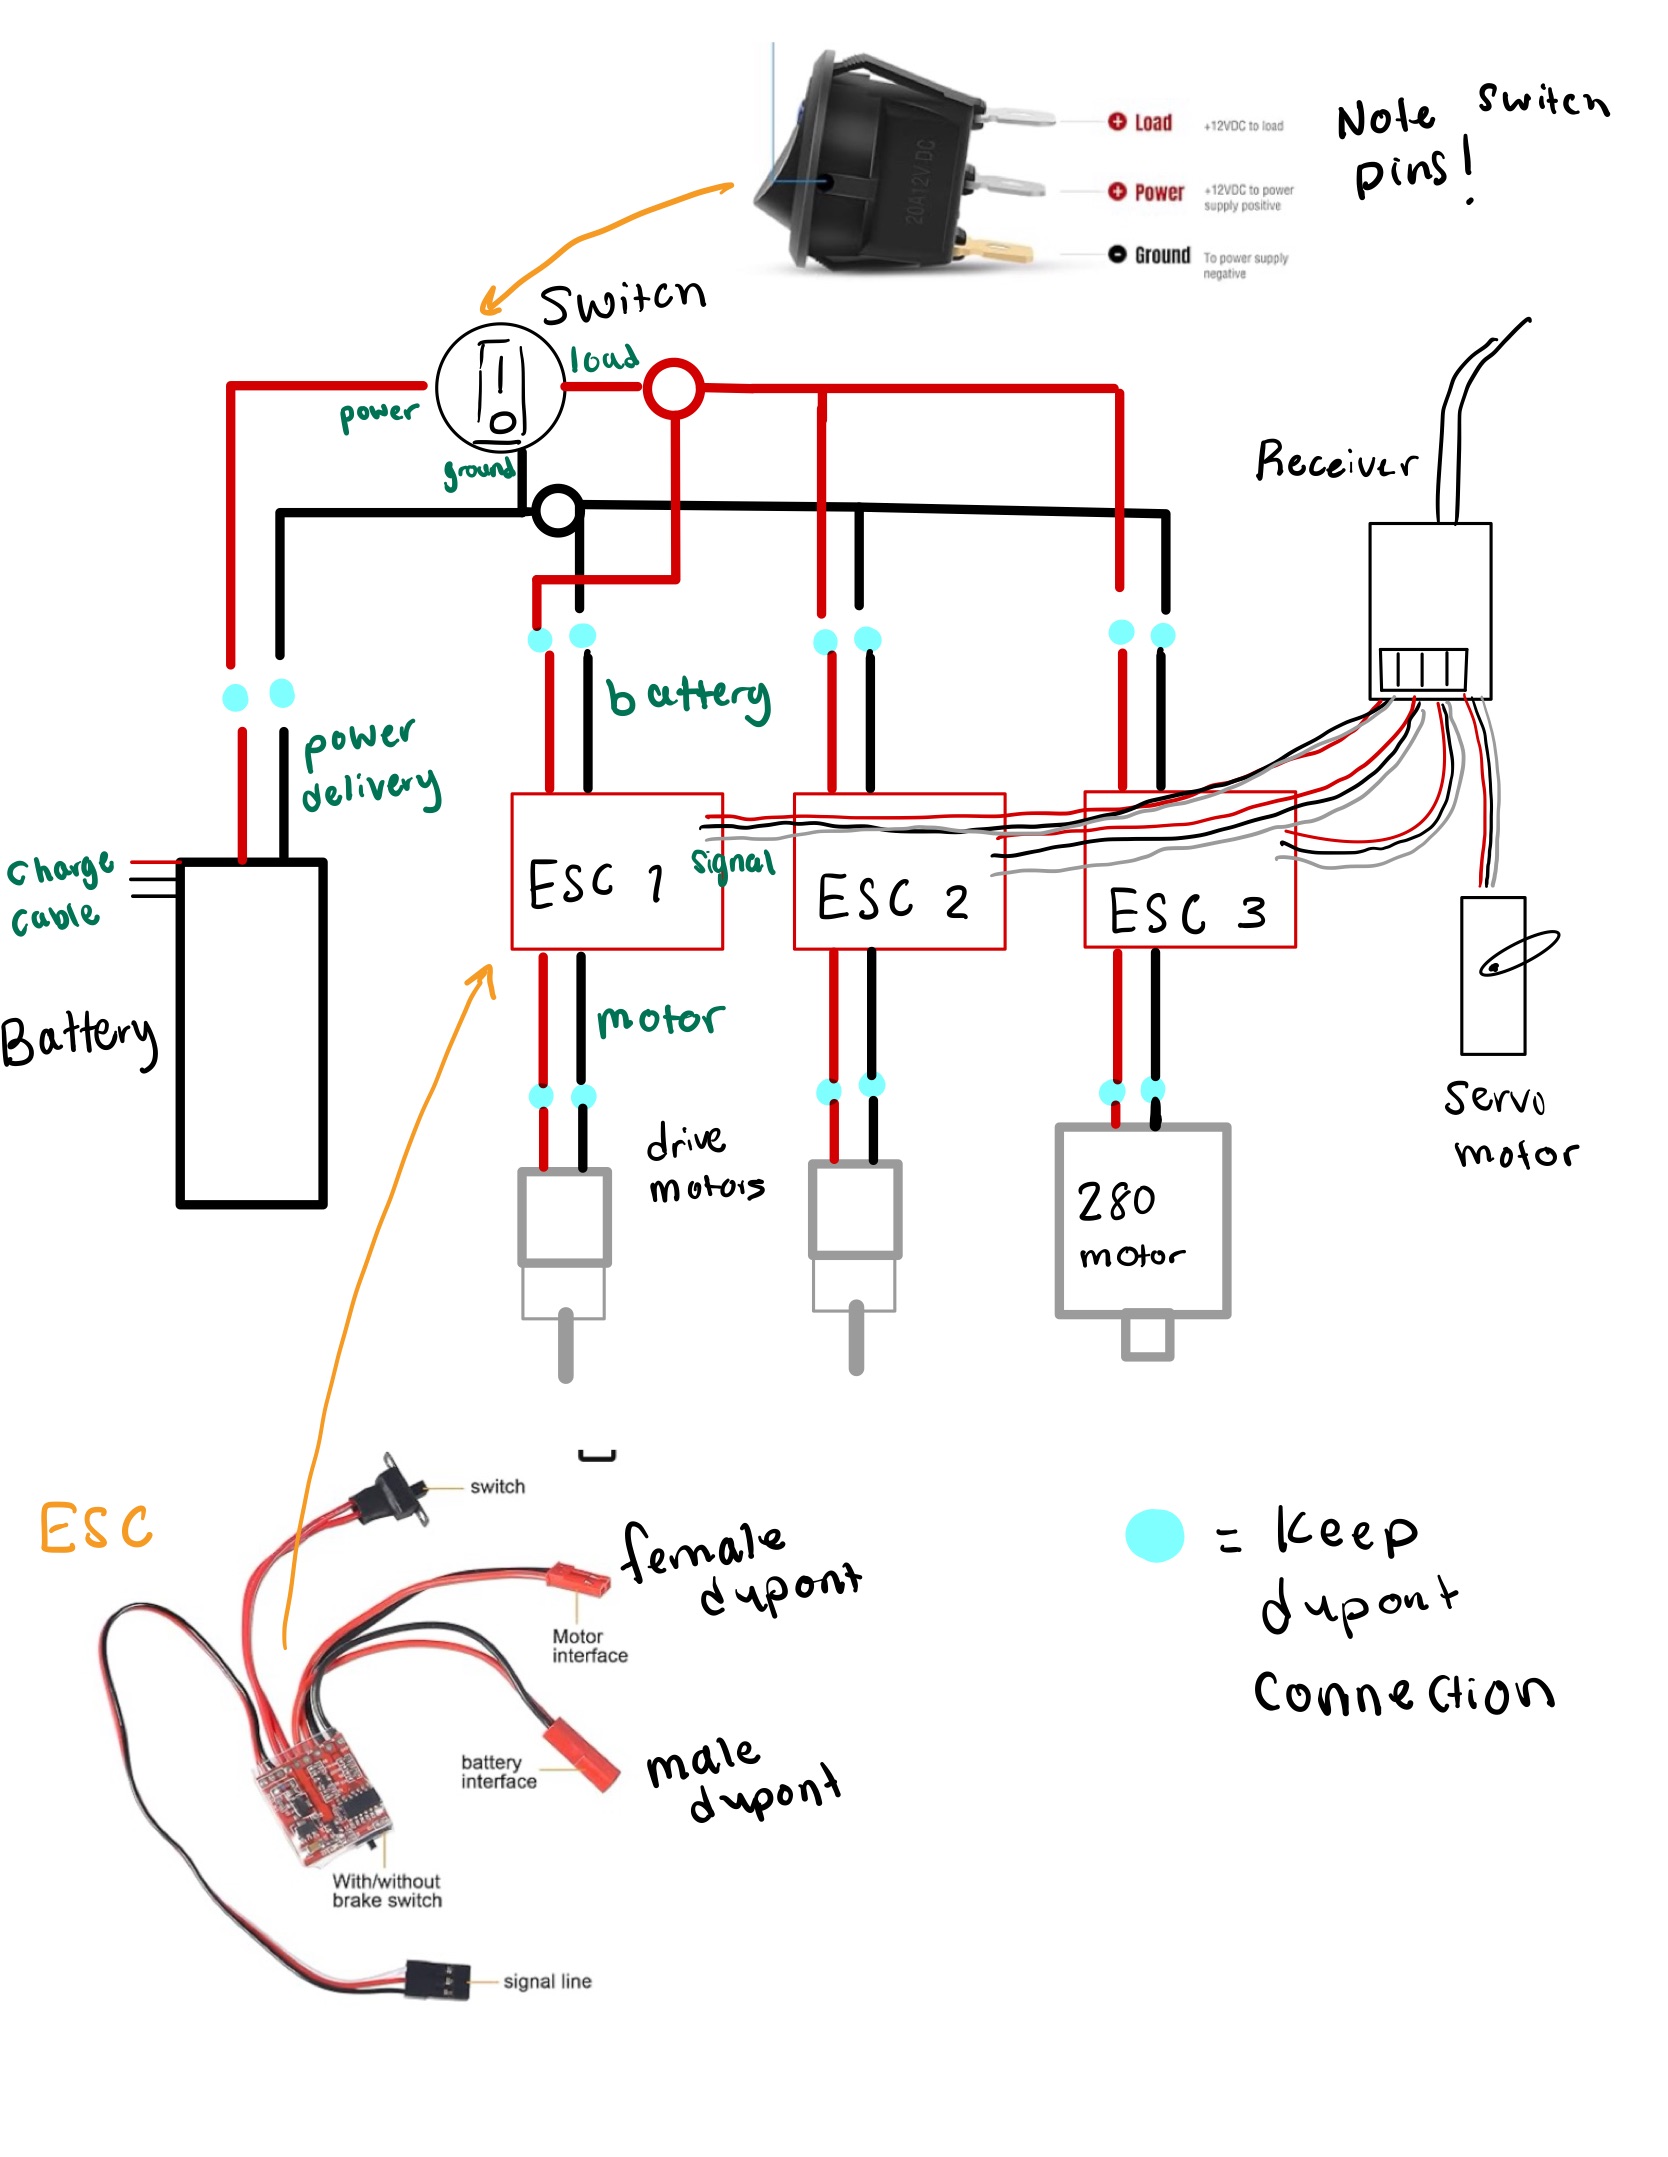 Note switch
pins!
Load +12VDC to load
Power +12VDC to power
supply positive
Ground To power supply
negative
20A12V DC
Switch
load
power
ground
Receiver
battery
power
delivery
charge
cable
Battery
ESC 1
signal
ESC 2
ESC 3
motor
drive
motors
280
motor
servo
motor
ESC
switch
female
dupont
Motor
interface
battery
interface
male
dupont
With/without
brake switch
signal line
= Keep
dupont
connection